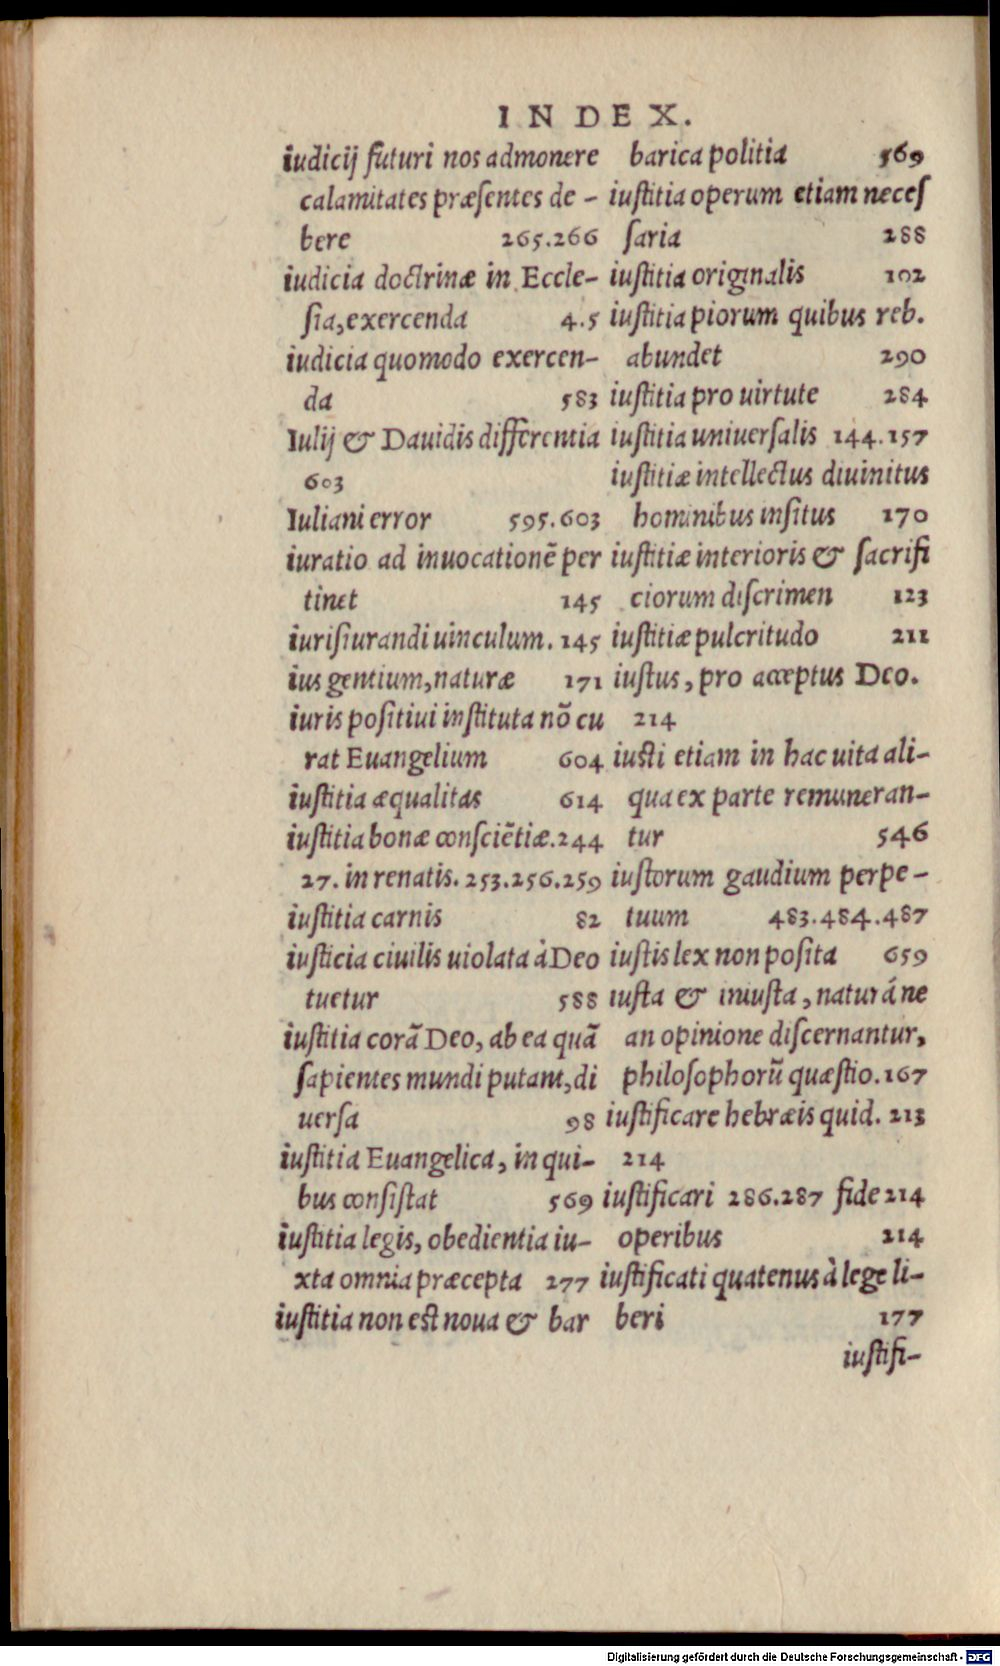 INDEX.
iudicij futuri nos admonere
calamitates præſentes de -
bere 265.266
iudicia doctrinæ in Eccle-
ſia, exercenda 4.5
iudicia quomodo exercen-
da 583
Iulij & Dauidis differentia
603
Iuliani error 595.603
iuratio ad inuocationē per
tinet 145
iuriſiurandi uinculum. 145
ius gentium, naturæ 171
iuris poſitiui inſtituta nō cu
rat Euangelium 604
iuſtitia æqualitas 614
iuſtitia bonæ conſciētiæ. 244
27. in renatis. 253.256.259
iuſtitia carnis 82
iuſticia ciuilis uiolata à Deo
tuetur 588
iuſtitia corā Deo, ab ea quā
ſapientes mundi putant, di
uerſa 98
iuſtitia Euangelica, in qui-
bus conſiſtat 569
iuſtitia legis, obedientia iu-
xta omnia præcepta 277
iuſtitia non eſt noua & bar
barica politia 569
iuſtitia operum etiam neceſ
ſaria 288
iuſtitia originalis 102
iuſtitia piorum quibus reb.
abundet 290
iuſtitia pro uirtute 284
iuſtitia uniuerſalis 144.157
iuſtitiæ intellectus diuinitus
hominibus inſitus 170
iuſtitiæ interioris & ſacrifi
ciorum diſcrimen 123
iuſtitiæ pulcritudo 211
iuſtus, pro acceptus Deo.
214
iuſti etiam in hac uita ali-
qua ex parte remuneran-
tur 546
iuſtorum gaudium perpe-
tuum 483.484.487
iuſtis lex non poſita 659
iuſta & iniuſta, natura ́ne
an opinione diſcernantur,
philoſophorū quæſtio. 167
iuſtificare hebræis quid. 213
214
iuſtificari 286.287 fide 214
operibus 214
iuſtificati quatenus à lege li-
beri 177
iuſtifi-
Digitalisierung gefördert durch die Deutsche Forschungsgemeinschaft - DFG